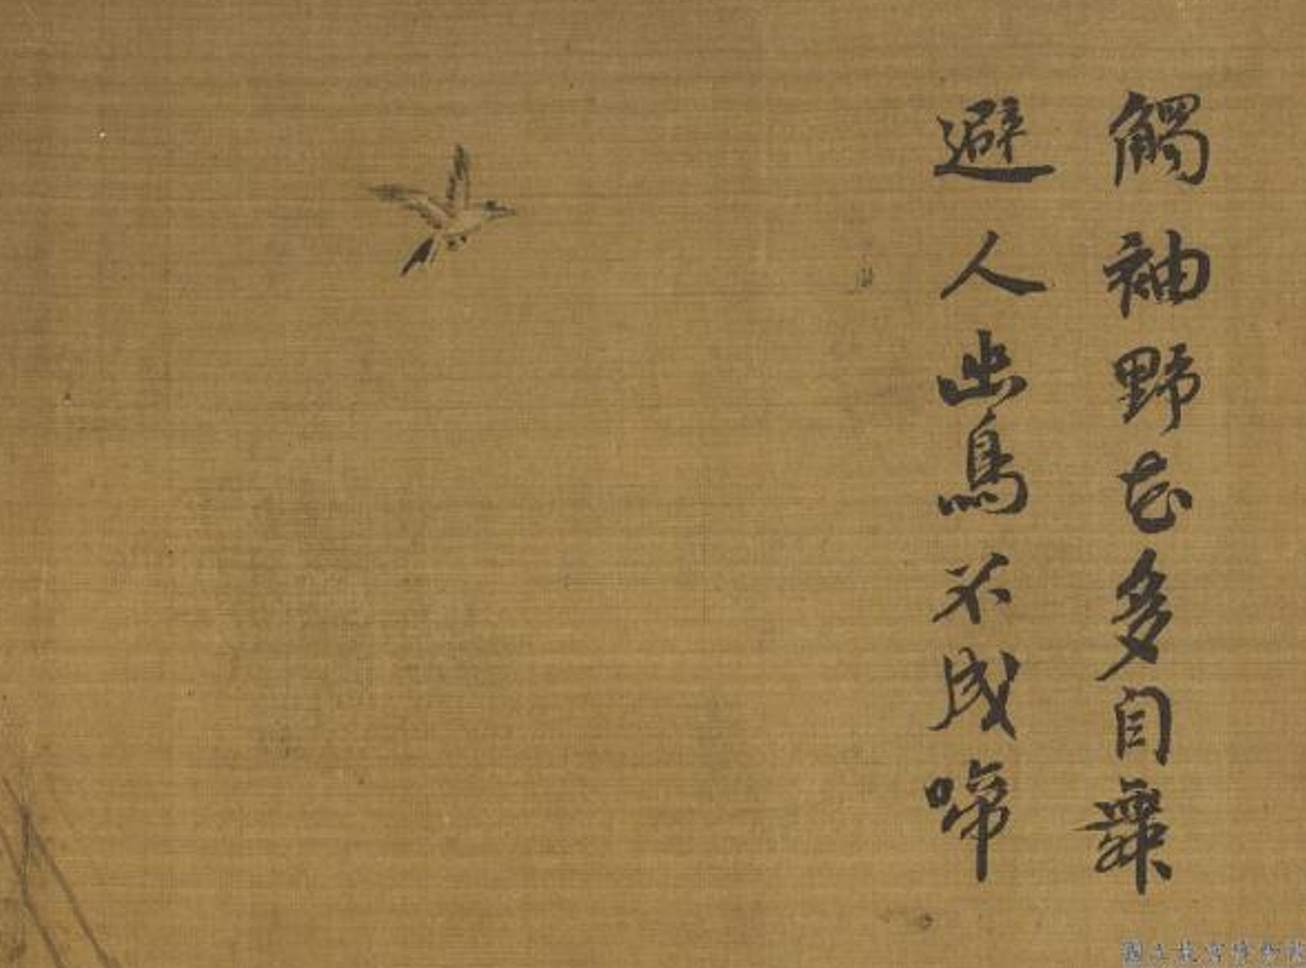 觸袖野花多自舞
避人幽鳥不成啼
國立故宮博物院